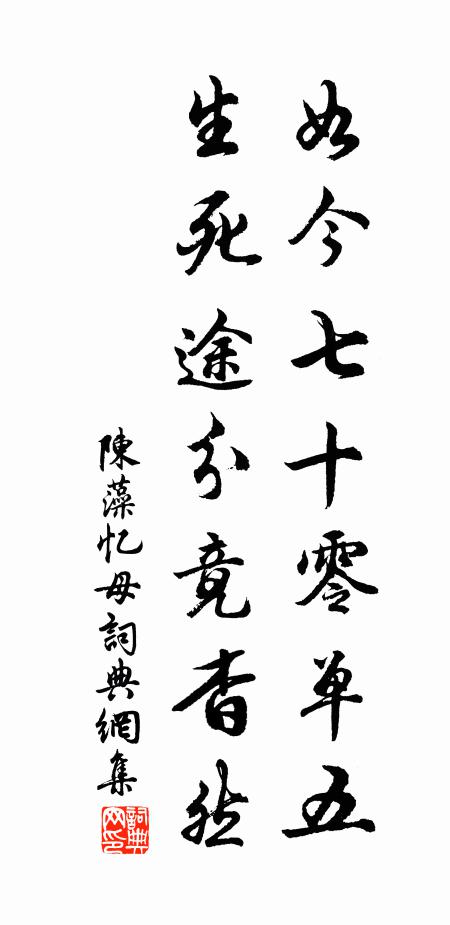 如今七十零单五
生死途分竟杳然
陳藻忆母詞典網集
詞典网印